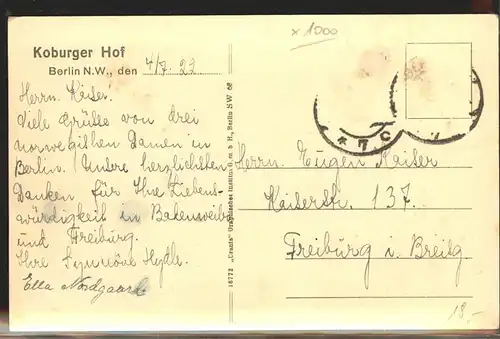 x 1000
Koburger Hof
Berlin N.W., den 4/7. 23
Herrn Kaiser.
Viele Grüsse von drei
norwegischen Damen in
Berlin. Unsere herzlichsten
Danken für Ihre Liebens-
würdigkeit in Badenweiler
und Freiburg.
Ihre Synnöve
Ella Nordgaard
16772 "Urania" Graphisches Institut G. m. b. H., Berlin SW 68
* 7 C
Herrn Eugen Kaiser
Kaiserstr. 137.
Freiburg i. Breisg.
18.-